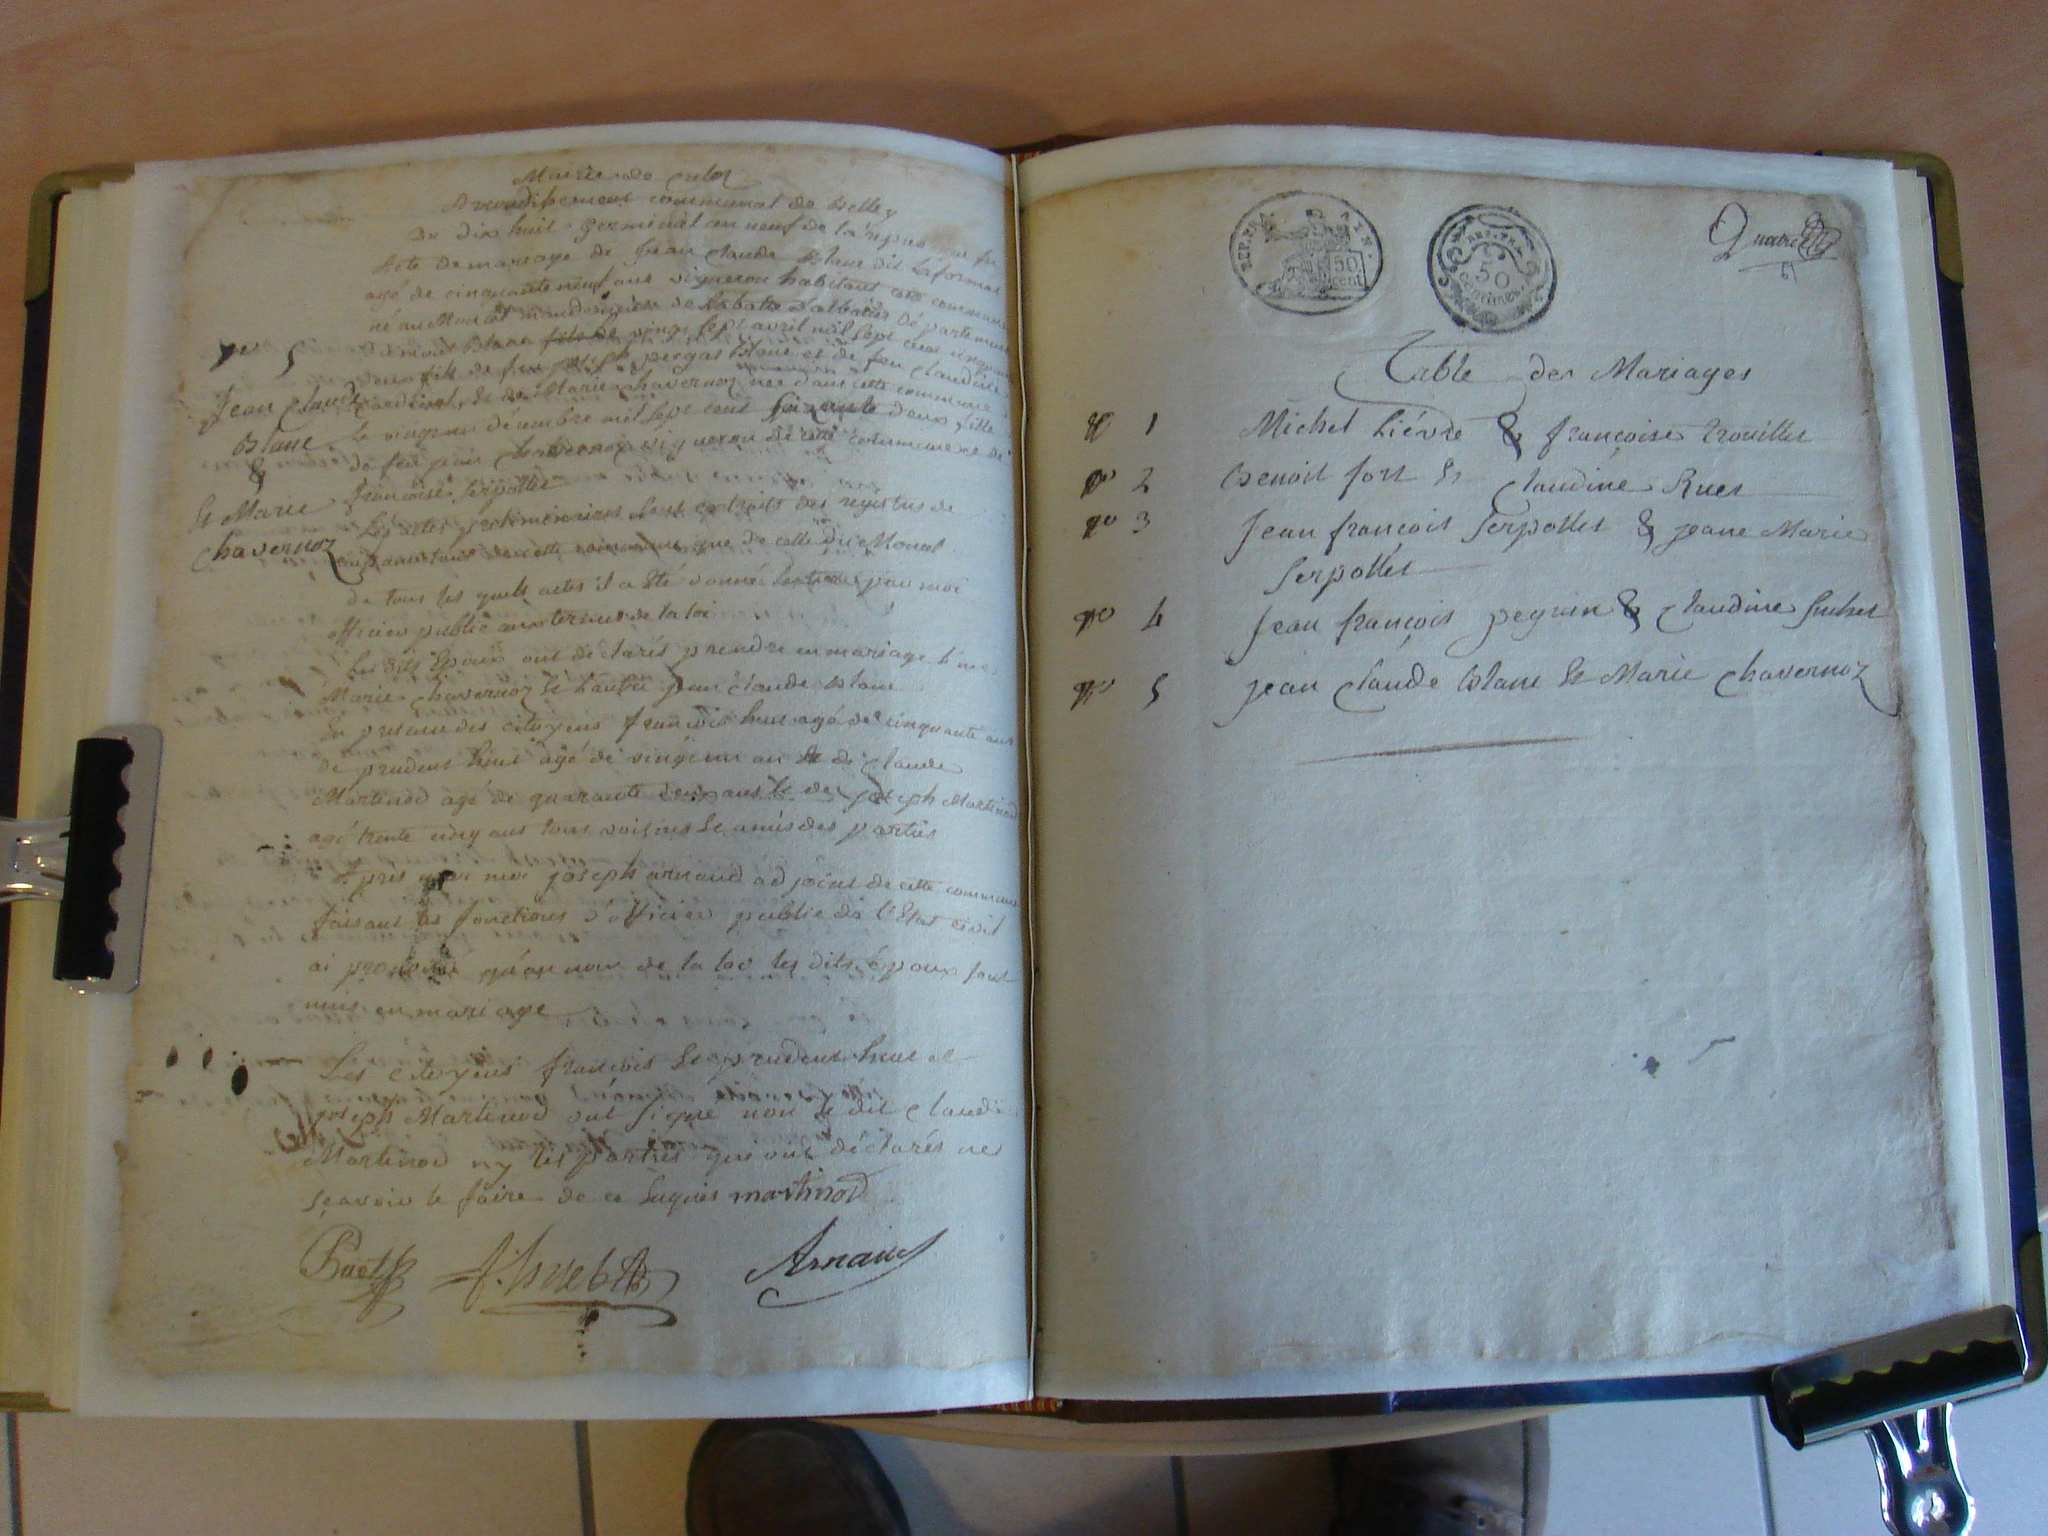 Mairie de Culoz
Arrondissement communal de Belley
Du dix huit germinal an neuf de la
Acte de mariage de Jean Claude Blanc dit
agé de cinquante neuf ans vigneron habitant cette commune
né au département
vingt sept avril mil sept cent
fils de feu et de feu Claudine
& de Marie Chavernoz née dans cette commune
Le vingt un décembre mil sept cent soixante deux fille
de feu Chavernoz vigneron de cette commune & de
françoise Serpollet
n° 5
Jean Claude
Blanc
&
& Marie
Chavernoz
Les actes préliminaires sont extraits des registres de
tant de cette commune que de celle du
de tous les quels actes il a été donné lecture par moi
officier public aux termes de la loi
Les dits Epoux ont déclarés prendre en mariage l'une
Marie Chavernoz & l'autre jean Claude Blanc
En presence des citoyens françois huet agé de cinquante ans
de prudent huet agé de vingt un an & de Claude
Martinod agé de quarante deux ans & de joseph Martinod
agé trente cinq ans tous voisins & amis des parties
Après quoi moi joseph arnaud adjoint de cette commune
faisant les fonctions d'officier public de l'Etat civil
ai prononcé qu'au nom de la loi les dits époux sont
unis en mariage
Les citoyens françois & prudent huet et
joseph Martinod ont signé non le dit Claude
Martinod ny les parties qui ont déclarés ne
sçavoir le faire de ce enquis martinod
huet Arnaud
REP. FRA. 50 cent
REP. FRA. 50 centimes
Quatre
Table des Mariages
n° 1 Michel Liévre & françoise trouillet
n° 2 Benoit fort & Claudine Ruet
n° 3 Jean françois Serpollet & jeane Marie
Serpollet
n° 4 Jean françois peguin & Claudine Suchet
n° 5 jean Claude Blanc & Marie Chavernoz